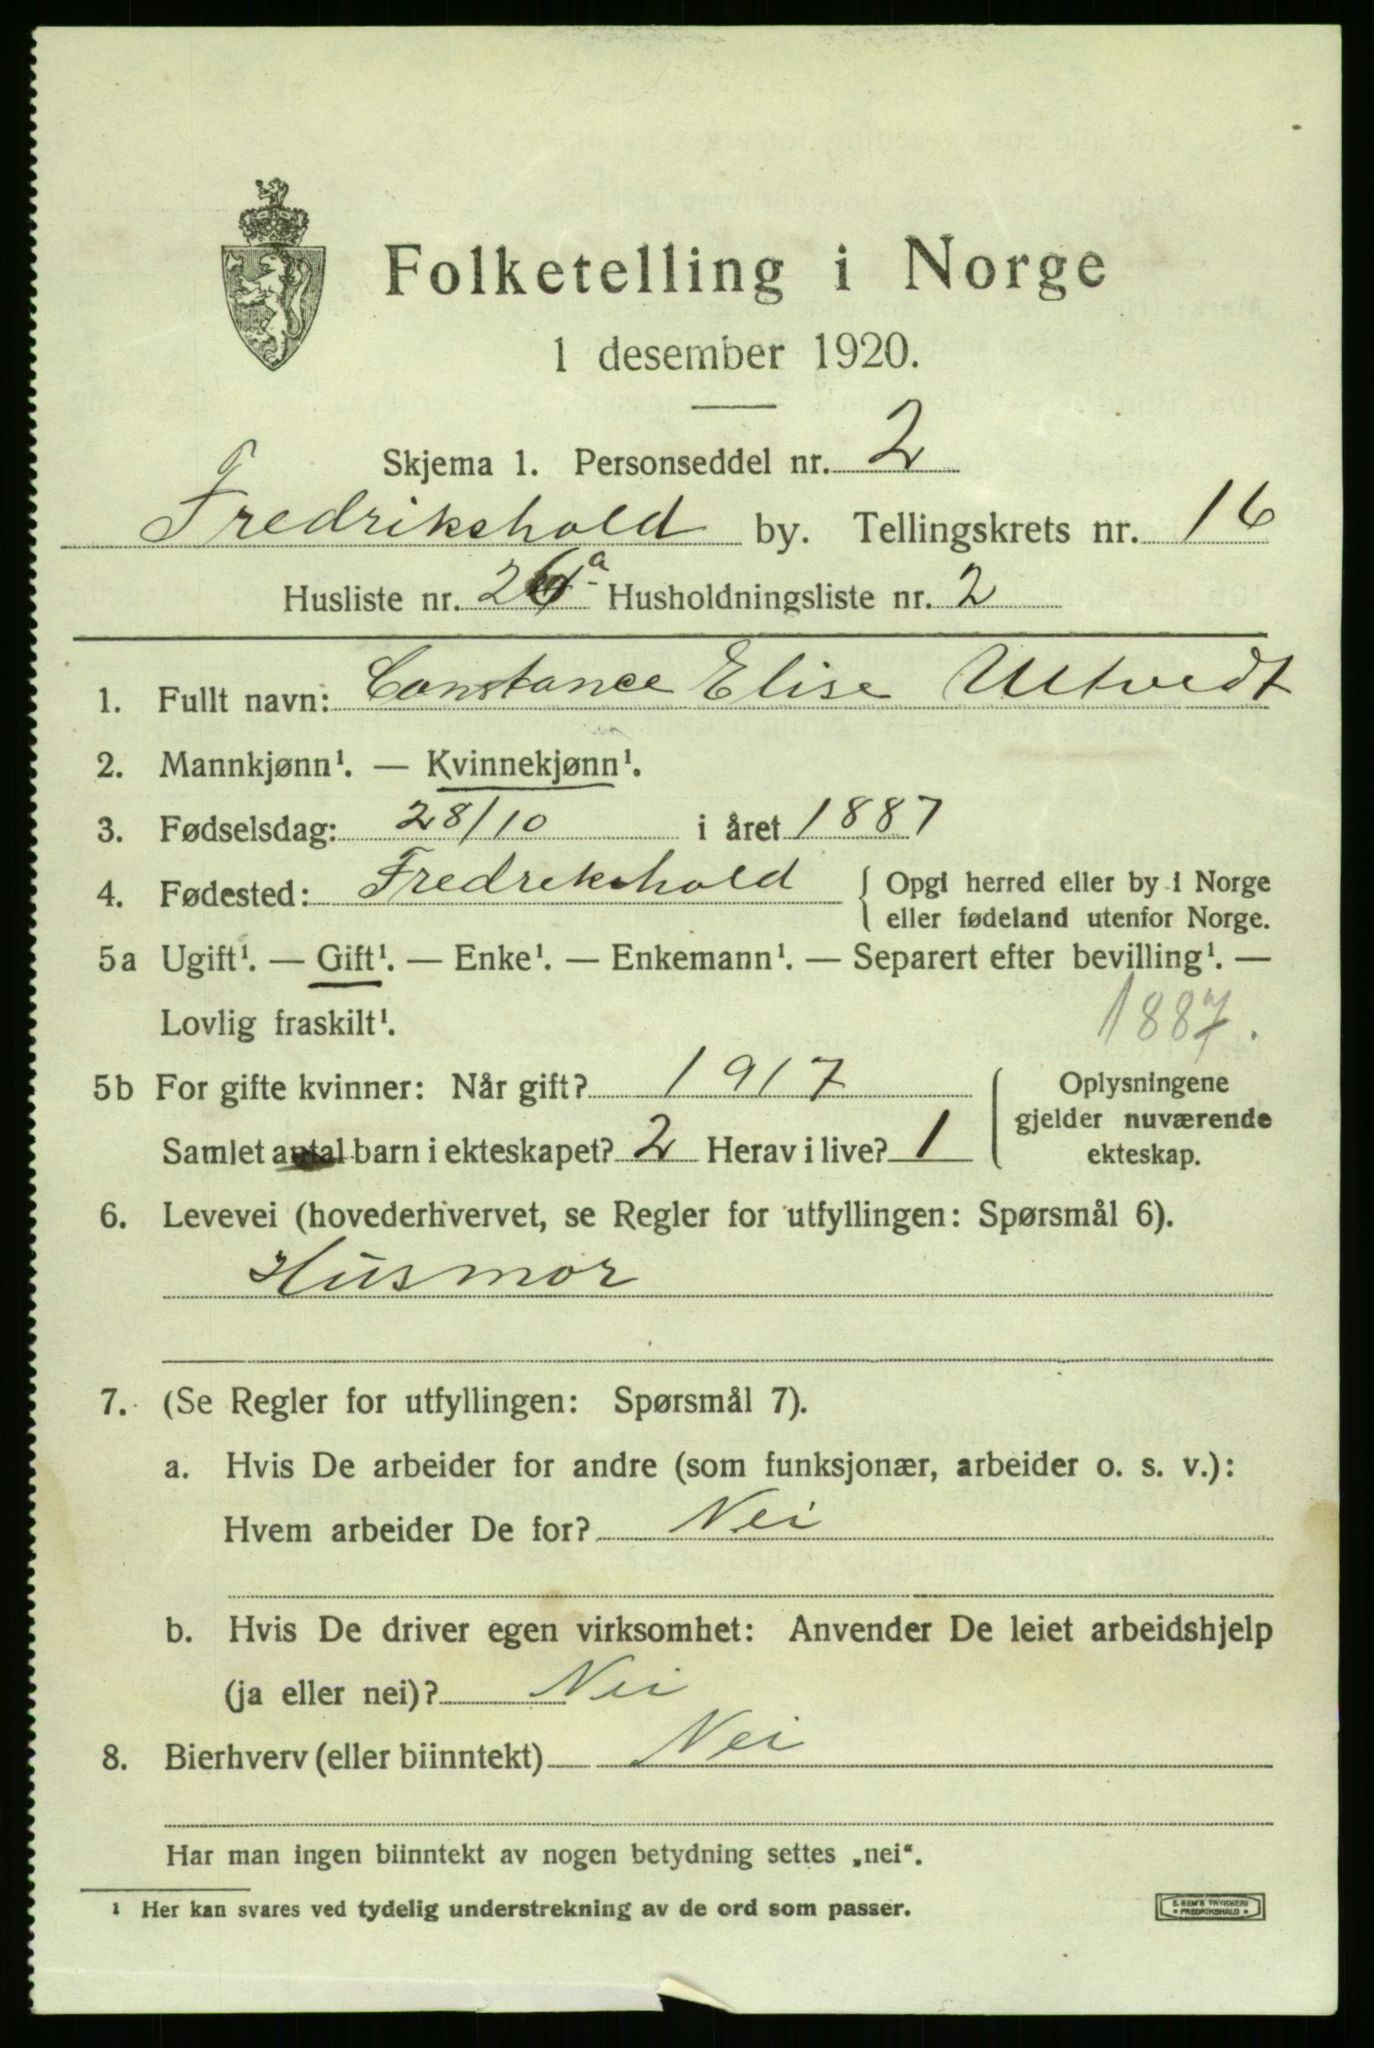 Folketelling i Norge
1 desember 1920.
Skjema 1. Personseddel nr. 2
Fredrikshold by. Tellingskrets nr. 16
Husliste nr. 26a Husholdningsliste nr. 2
1. Fullt navn: Constance Elise Utvedt
2. Mannkjønn¹. — Kvinnekjønn¹.
3. Fødselsdag: 28/10 i året 1887
4. Fødested: Fredrikshold { Opgi herred eller by i Norge
eller fødeland utenfor Norge.
5a Ugift¹. — Gift¹. — Enke¹. — Enkemann¹. — Separert efter bevilling¹. —
Lovlig fraskilt¹. 1887.
5b For gifte kvinner: Når gift? 1917
Samlet antal barn i ekteskapet? 2 Herav i live? 1
Oplysningene
gjelder nuværende
ekteskap.
6. Levevei (hovederhvervet, se Regler for utfyllingen: Spørsmål 6).
Husmor
7. (Se Regler for utfyllingen: Spørsmål 7).
a. Hvis De arbeider for andre (som funksjonær, arbeider o. s. v.):
Hvem arbeider De for? Nei
b. Hvis De driver egen virksomhet: Anvender De leiet arbeidshjelp
(ja eller nei)? Nei
8. Bierhverv (eller biinntekt) Nei
Har man ingen biinntekt av nogen betydning settes „nei“.
¹ Her kan svares ved tydelig understrekning av de ord som passer.
E. SEM'S TRYKKERI
FREDRIKSHALD